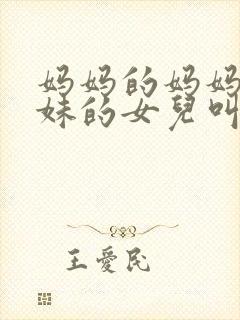 妈妈的妈妈
妹的女兒叫
王愛民